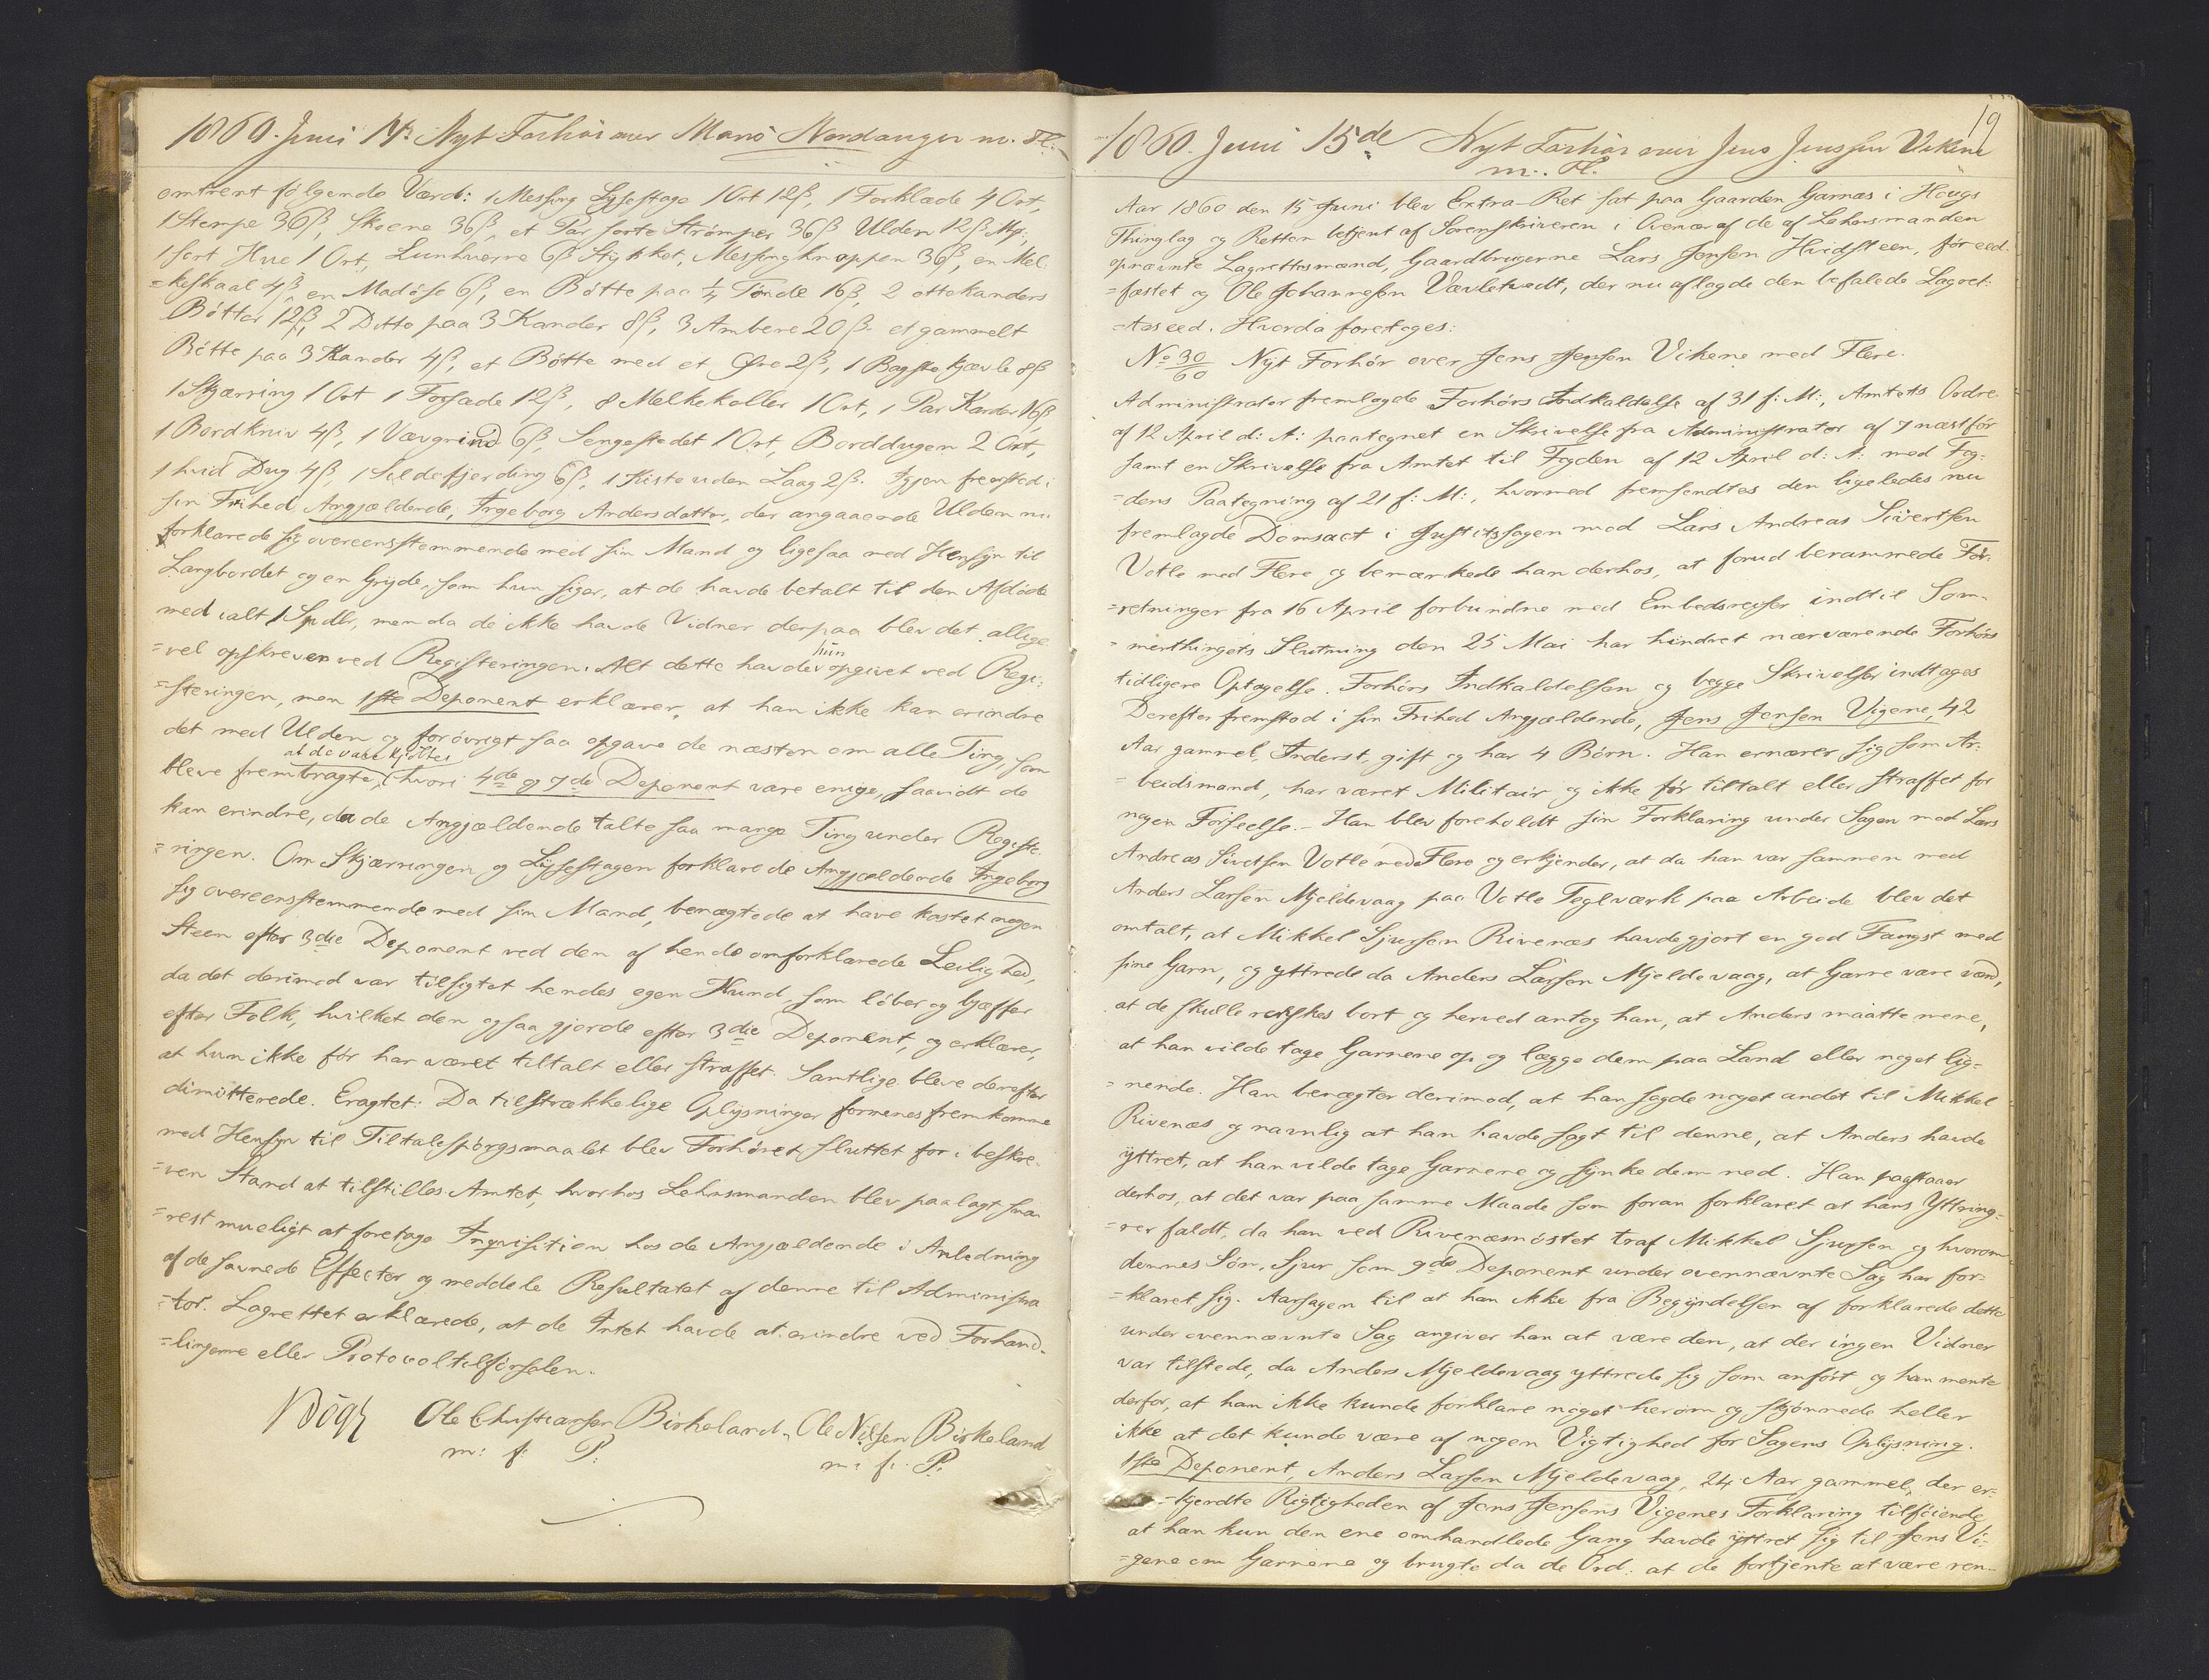 1860. Juni 14de Nyt Forhör over Mons Nordanger m. Fl.
omtrent fölgende Værd: 1 Messing Lysestage 1 Ort 12ß, 1 Forklæde 4 Ort,
1 Stempe 36ß, Skoene 36ß, et Par sorte Strömper 36ß Ulden 12ß Mk:,
1 sort Hue 1 Ort, Lunhuerne 6ß Stykket, Messingknappen 36ß, en Mel-
=keskaal 4ß, en Madöse 6ß, en Bötte paa ¼ Tönde 16ß, 2 ottekanders
Bötter 12ß, 2 Ditto paa 3 Kander 8ß, 3 Ambere 20ß. et gammelt
Bötte paa 3 Kander 4ß, et Bötte med et Øre 2ß, 1 Bagstekjævle 8ß
1 Skjærring 1 Ort 1 Forsæde 12ß, 8 Melkekoller 1 Ort, 1 Par Karder 16ß
1 Bordkniv 4ß, 1 Vævgrind 6ß, Sengestedet 1 Ort, Borddugen 2 Ort,
1 hvid Dug 4ß, 1 Sildefjerding 6ß, 1 Kiste uden Laag 2ß. Igjen fremstod i
sin Frihed Angjældende, Ingeborg Andersdatter, der angaaende Ulden nu
forklarede sig overeensstemmende med sin Mand og ligesaa med Hensyn til
Langbordet og en Gryde, som hun siger, at de havde betalt til den Afdöde
med ialt 1 Spdlr, men da de ikke havde Vidner derpaa blev det allige-
=vel opskreven ved Registeringen. Alt dette havde hun opgivet ved Regi-
=steringen, men 1ste Deponent erklærer, at han ikke kan erindre
det med Ulden og forövrigt saa opgave de næsten om alle Ting, som
bleve frembragte, at de vare kjöbte, hvori 4de og 7de Deponent vare enige, saavidt de
kan erindre, da de Angjældende talte saa mange Ting under Registe-
=ringen. Om Skjærringen og Lysestagen forklarede Angjældende Ingeborg
sig overeensstemmende med sin Mand, benægtede at have kastet nogen
Steen efter 3die Deponent ved den af hende omforklarede Leilighed,
da det derimod var tilsigtet hendes egen Hund, som löber og bjæffer
efter Folk, hvilket den ogsaa gjorde efter 3die Deponent, og erklærer,
at hun ikke för har været tiltalt eller straffet. Samtlige bleve derefter
dimitterede. Eragtet: Da tilstrækkelige Oplysninger formenes fremkomne
med Hensyn til Tiltalespörgsmaalet blev Forhöret sluttet for i beskre-
=ven Stand at tilstilles Amtet, hvorhos Lehnsmanden blev paalagt sna-
=rest mueligt at foretage Inqvisition hos de Angjældende i Anledning
af de savnede Effecter og meddele Resultatet af denne til Administra
=tor. Lagrettet erklærede, at de Intet havde at erindre ved Forhand-
=lingerne eller Protocoltilförselen.
Bögh Ole Christiansen Birkeland, Ole Nilsen Birkeland
m: f: P: m: f: P:
19
1860. Juni 15de Nyt Forhör over Jens Jenssen Vikene
m. Fl.
Aar 1860 den 15 Juni blev Extra-Ret sat paa Gaarden Garnæs i Hougs
Thinglag og Retten betjent af Sorenskriveren i Overvær af de af Lehnsmanden
opnævnte Lagrettesmænd, Gaardbrugerne Lars Jensen Hvidsteen, för eed-
=fæstet og Ole Johannesen Vævletvedt, der nu aflagde den befalede Lagret-
=tes eed. Hvorda foretages:
No 30/60 Nyt Forhör over Jens Jensen Vikene med Flere.
Administrator fremlagde Forhörs Indkaldelse af 31 f: M:, Amtets Ordre
af 12 April d: A: paategnet en Skrivelse fra Administrator af 7 næstför
samt en Skrivelse fra Amtet til Fogden af 12 April d: A: med Fog-
=dens Paategning af 21 f: M:, hvormed fremsendtes den ligeledes nu
fremlagde Domsact i Justitssagen mod Lars Andreas Sivertsen
Votle med Flere og bemærkede han derhos, at forud berammede For-
=retninger fra 16 April forbundne med Embedsreiser indtil Som-
=merthingets Slutning den 25 Mai har hindret nærværende Forhörs
tidligere Optagelse. Forhörs Indkaldelsen og begge Skrivelser indtages
Derefter fremstod i sin Frihed Angjældende, Jens Jensen Vigene, 42
Aar gammel, Inderst, gift og har 4 Börn. Han ernærer sig som Ar-
=beidsmand, har været Militair og ikke för tiltalt eller straffet for
nogen Forseelse. – Han blev foreholdt sin Forklaring under Sagen mod Lars
Andreas Sivertsen Votle med Flere og erkjender, at da han var sammen med
Anders Larsen Mjeldevaag paa Votle Teglværk paa Arbeide blev det
omtalt, at Mikkel Sjursen Rivenæs havde gjort en god Fangst med
sine Garn, og yttrede da Anders Larsen Mjeldevaag, at Garne vare værd,
at de skulle renskes bort og herved antog han, at Anders maatte mene,
at han vilde tage Garnene op og lægge dem paa Land eller noget lig-
=nende. Han benægter derimod, at han sagde noget andet til Mikkel
Rivenæs og navnlig at han havde sagt til denne, at Anders havde
yttret, at han vilde tage Garnene og synke dem ned. Han paastaaer
derhos, at det var paa samme Maade som foran forklaret at hans Yttring-
=rer faldt, da han ved Rivenæsnöstet traf Mikkel Sjursen og hvorom
dennes Sön, Sjur som 9de Deponent under ovennævnte Sag har for-
=klaret sig. Aarsagen til at han ikke fra Begyndelsen af forklarede dette
under ovennævnte Sag angiver han at være den, at der ingen Vidner
var tilstede, da Anders Mjeldevaag yttrede sig som anfört og han mente
derfor, at han ikke kunde forklare noget herom og skjönnede heller
ikke at det kunde være af nogen Vigtighed for Sagens Oplysning.
1ste Deponent, Anders Larsen Mjeldevaag, 24 Aar gammel, der er-
=kjendte Rigtigheden af Jens Jensens Vigenes Forklaring tilföiende,
at han kun den ene omhandlede Gang havde yttret sig til Jens Vi-
=gene om Garnene og brugte da de Ord: at de fortjente at være ren-